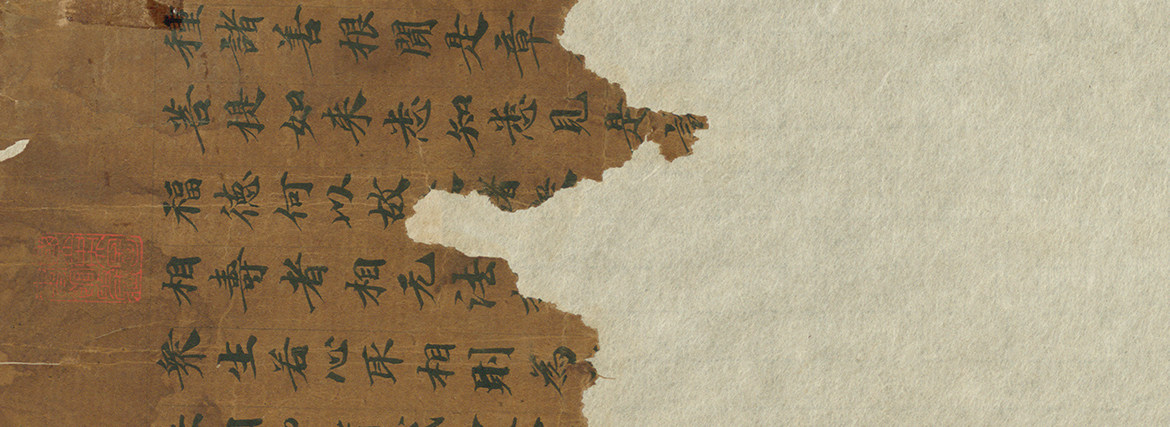 種諸善根聞是章
菩提如来悉知悉見是
福德何以故
相壽者相无法
衆生若心取相則為